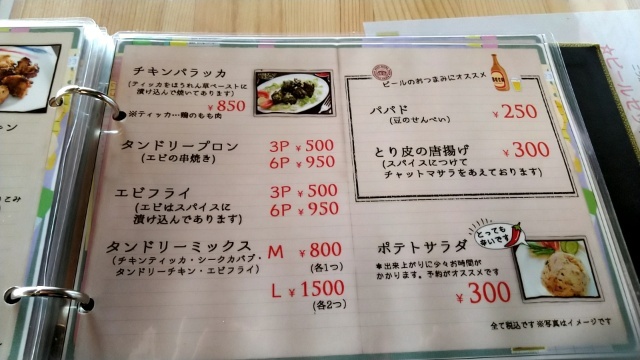 チキンパラッカ
(ティッカをほうれん草ペーストに
漬け込んで焼いてあります)
¥850
※ティッカ…鶏のもも肉
タンドリープロン 3P ¥500
(エビの串焼き) 6P ¥950
エビフライ 3P ¥500
(エビはスパイスに 6P ¥950
漬け込んであります)
タンドリーミックス M ¥800
(チキンティッカ・シークカバブ・ (各1つ)
タンドリーチキン・エビフライ)
L ¥1500
(各2つ)
ビールのおつまみにオススメ
パパド ¥250
(豆のせんべい)
とり皮の唐揚げ ¥300
(スパイスにつけて
チャットマサラをあえております)
とっても
辛いです
ポテトサラダ
※出来上がりに少々お時間が
かかります。予約がオススメです
¥300
全て税込です ※写真はイメージです